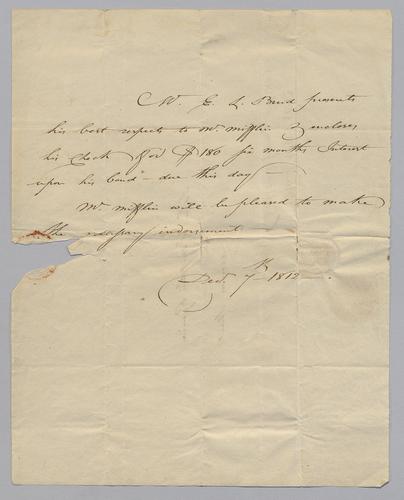 Mr. E. L. Bend presents
his best respects to Mr. Mifflin & encloses
his Check for $180 six months Interest
upon his bond - due this day -
Mr. Mifflin will be pleased to make
the necessary indorsement
Decr. 7th 1812